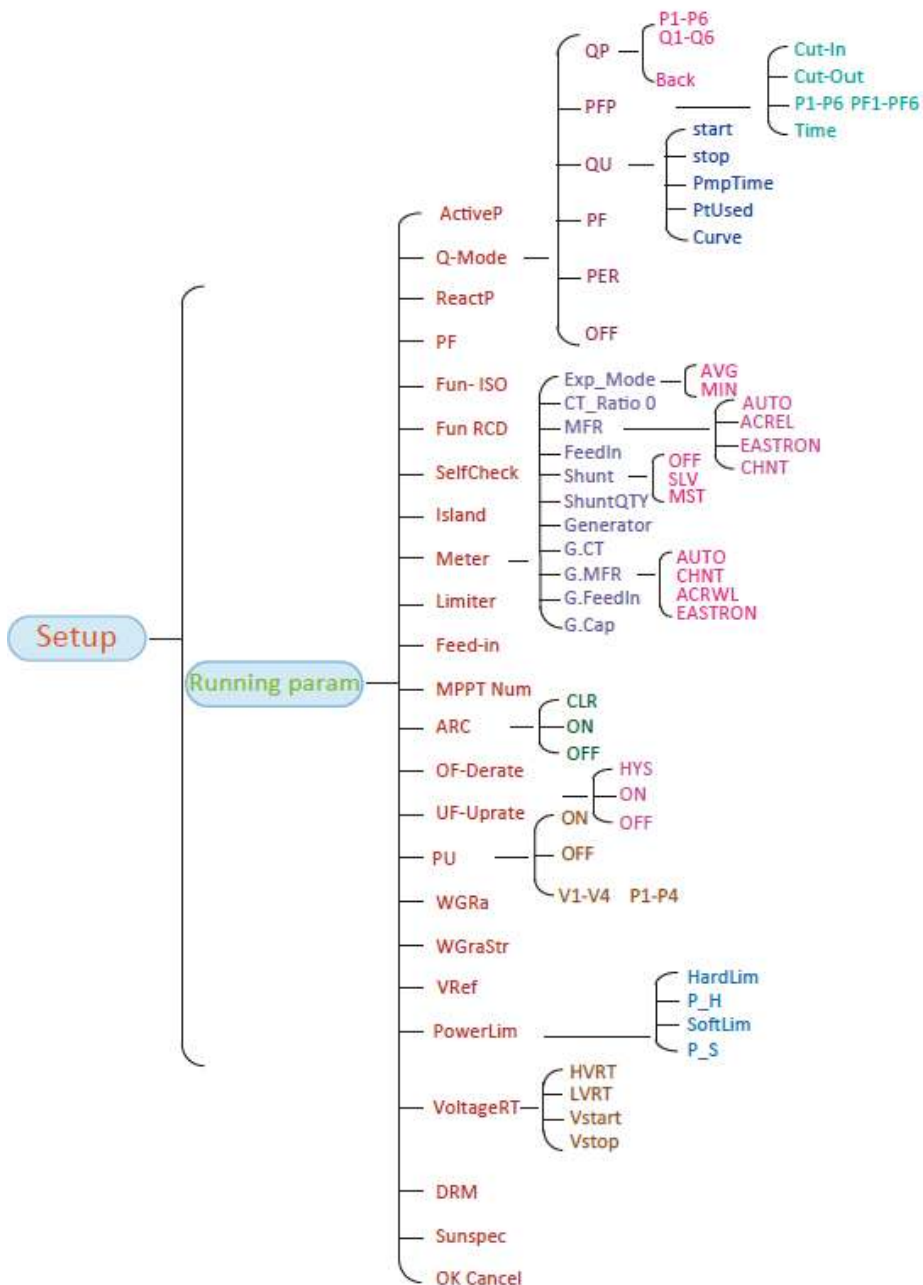 Setup
Running param
ActiveP
Q-Mode
QP
P1-P6
Q1-Q6
Back
PFP
Cut-In
Cut-Out
P1-P6 PF1-PF6
Time
QU
start
stop
PmpTime
PtUsed
Curve
PF
PER
OFF
ReactP
PF
Fun- ISO
Fun RCD
SelfCheck
Island
Meter
Exp_Mode
AVG
MIN
CT_Ratio 0
MFR
AUTO
ACREL
EASTRON
CHNT
FeedIn
Shunt
OFF
SLV
MST
ShuntQTY
Generator
G.CT
G.MFR
AUTO
CHNT
ACRWL
EASTRON
G.FeedIn
G.Cap
Limiter
Feed-in
MPPT Num
ARC
CLR
ON
OFF
OF-Derate
UF-Uprate
HYS
ON
OFF
PU
ON
OFF
V1-V4 P1-P4
WGRa
WGraStr
VRef
PowerLim
HardLim
P_H
SoftLim
P_S
VoltageRT
HVRT
LVRT
Vstart
Vstop
DRM
Sunspec
OK Cancel